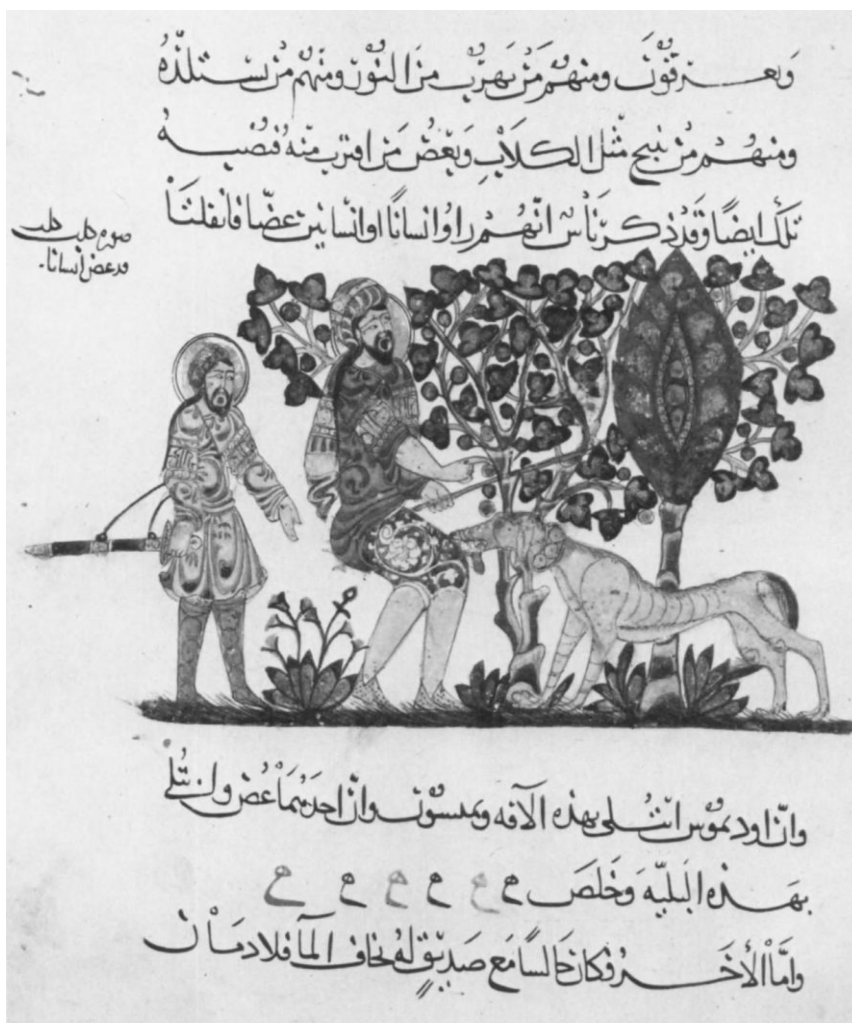 ويعرقون ومنهم من يهرب من النور ومنهم من يستلذه
ومنهم من ينبح مثل الكلاب وبعض من اقترب منه فتصيبه
تلك ايضًا وقد ذكر ناس انهم راوا انسانًا او انسانين عضّا فانفلتا
صورة كلب كلب
قد عض انسانا.
وانّ اوديموس ابتلى بهذه الآفه وانّ احدهما عض وابتلى
بهذه البليّه وخلص ح ح ح ح ح ح
وامّا الأخر فكان جالسا مع صديق له يخاف المآ